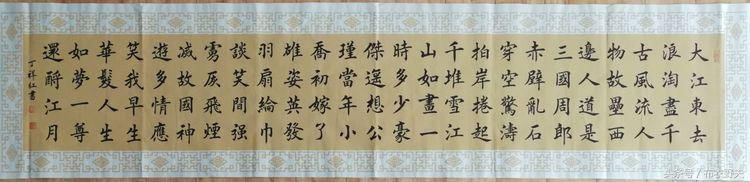 大江東去
浪淘盡千
古風流人
物故壘西
邊人道是
三國周郎
赤壁亂石
穿空驚濤
拍岸捲起
千堆雪江
山如畫一
時多少豪
傑遥想公
瑾當年小
喬初嫁了
雄姿英發
羽扇綸巾
談笑間强
虜灰飛煙
滅故國神
遊多情應
笑我早生
華髮人生
如夢一尊
還酹江月
丁祥红書
头条号